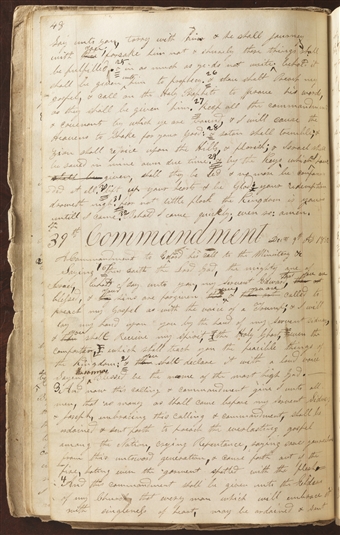 48
say unto you, tarry with him & he shall journey
with you forsake him not & surely these things shall
be fulfilled 25 & in as much as ye do not write behold it
shall be given him to prophesy 26 & thou shalt preach my
gospel, & call on the Holy Prophets to prove his words
as they shall be given him. 27 Keep all the commandments
& covenants by which ye are bound, & I will cause the
heavens to Shake for your good 28 & Satan shall tremble, &
Zion shall rejoice upon the Hills, & flourish; & Israel shall
be saved in mine own due time, 29 & by the keys which I have
given, shall they be led & no more be confoun
ded at all. Lift up your hearts & be Glad your redemption
draweth nigh. 31 fear not little flock the Kingdom is yours
untill I come. 32 Behold I come quickly even so. amen.
39th Commandment
Commandment to
saying 1 Thus saith the Lord God, the mighty one of
Israel, behold I say unto you, my servent Edward, that you are
blessed, & your sins are forgiven & you are called to
preach my Gospel as with the voice of a Trumpet; 2 & I will
lay my hand upon you by the hand of my servent Sidney
& you shall receive my spirit, the Holy Ghost even the
comforter, which shall teach you the peaceible things of
the kingdom; 3 & you shall declare it with a loud voice
saying, Hosanna blessed be the name of the most high god
And now this calling & commandment give I unto all
men, that as many as shall come before my servent Sidney
& Joseph, embracing this calling & commandment, shall be
ordained & sent forth to preach the everlasting gospel
among the Nation, crying Repentance, saying save yourselves
from this untoward generation, & come forth out of the
fire, hating even the garment spotted with the flesh
And this commandment shall be given unto the elders
of my Church, that every man which will embrace it
with singleness of heart, may be ordained & sent